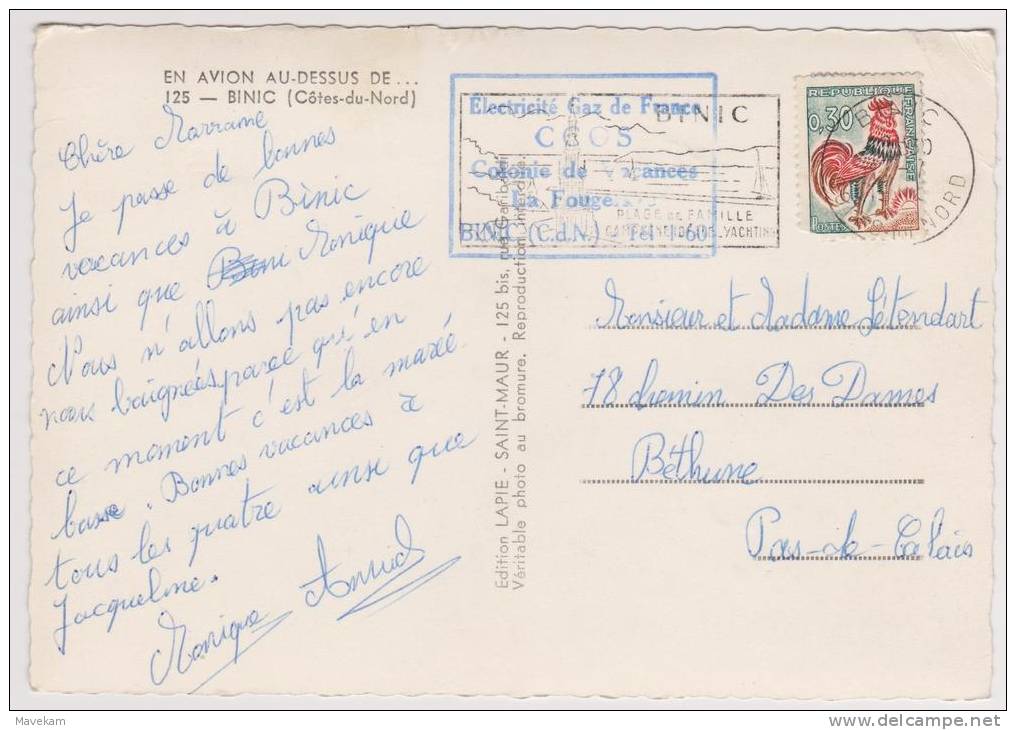 EN AVION AU-DESSUS DE...
125 — BINIC (Côtes-du-Nord)
Chère Marraine
Je passe de bonnes
vacances à Binic
ainsi que Monique
Nous n'allons pas encore
nous baignées parce qu'en
ce moment c'est la marée
basse. Bonnes vacances à
tous les quatre ainsi que
Jacqueline.
Monique
Edition LAPIE - SAINT-MAUR - 125 bis, rue Garibaldi
Véritable photo au bromure. Reproduction interdite.
Electricité Gaz de France
Colonie de Vacances
La Fougeraie
BINIC (C.d.N.) Tél 160
BINIC
PLAGE DE FAMILLE
YACHTING
REPUBLIQUE
FRANÇAISE
0,30
POSTES
NORD
Monsieur et Madame Létendart
78 chemin Des Dames
Béthune
Pas-de-Calais
Mavekam
delcampe.net